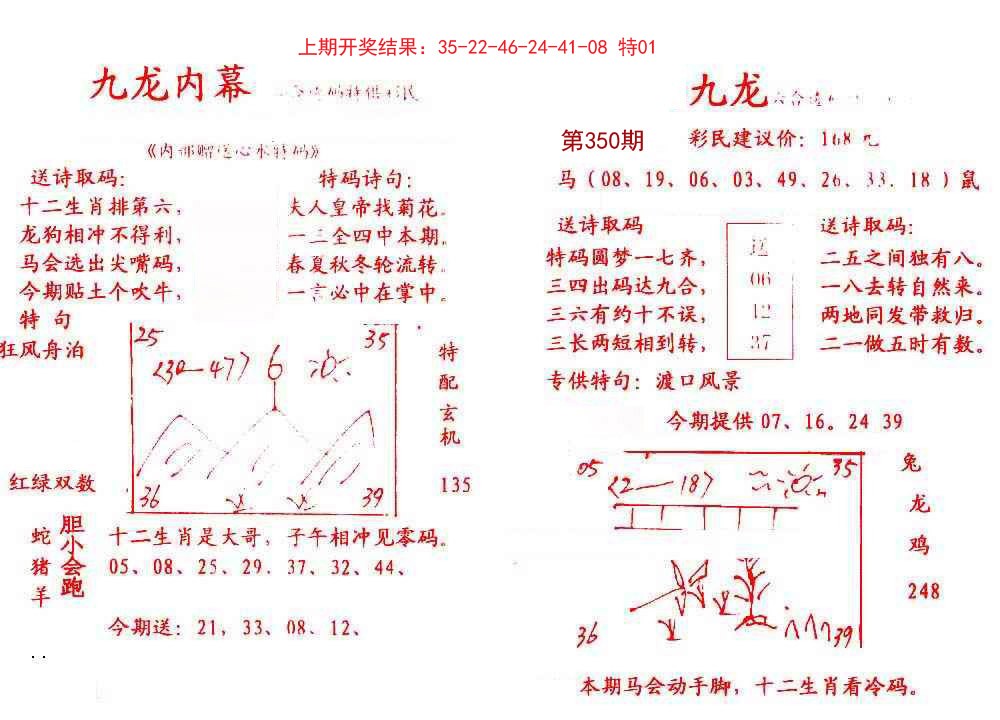 上期开奖结果：35-22-46-24-41-08 特01
九龙内幕
《内部赠送心水特码》
送诗取码：
十二生肖排第六，
龙狗相冲不得利，
马会选出尖嘴码，
今期贴土个吹牛，
特码诗句：
夫人皇帝找菊花。
一三全四中本期。
春夏秋冬轮流转。
一言必中在掌中。
特 句
狂风舟泊
红绿双数
25
35
<30—47> 6
36
39
特配玄机
135
蛇猪羊
胆小会跑
十二生肖是大哥，子午相冲见零码。
05、08、25、29．37、32、44、
今期送：21，33、08、12、
. .
九龙
第350期
彩民建议价：168 元
马（08、19、06、03、49、26、33．18）鼠
送诗取码
特码圆梦一七齐，
三四出码达九合，
三六有约十不误，
三长两短相到转，
送
06
12
37
送诗取码：
二五之间独有八。
一八去转自然来。
两地同发带救归。
二一做五时有数。
专供特句：渡口风景
今期提供 07、16。24 39
05
35
<2—18>
36
39
兔
龙
鸡
248
本期马会动手脚，十二生肖看冷码。